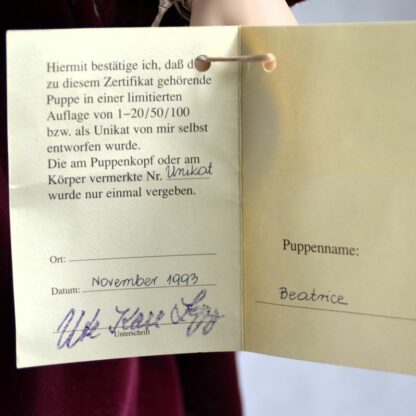 Hiermit bestätige ich, daß d
zu diesem Zertifikat gehörende
Puppe in einer limitierten
Auflage von 1–20/50/100
bzw. als Unikat von mir selbst
entworfen wurde.
Die am Puppenkopf oder am
Körper vermerkte Nr. Unikat
wurde nur einmal vergeben.
Ort:
Datum: November 1993
Ute Kase Lepp
Unterschrift
Puppenname:
Beatrice